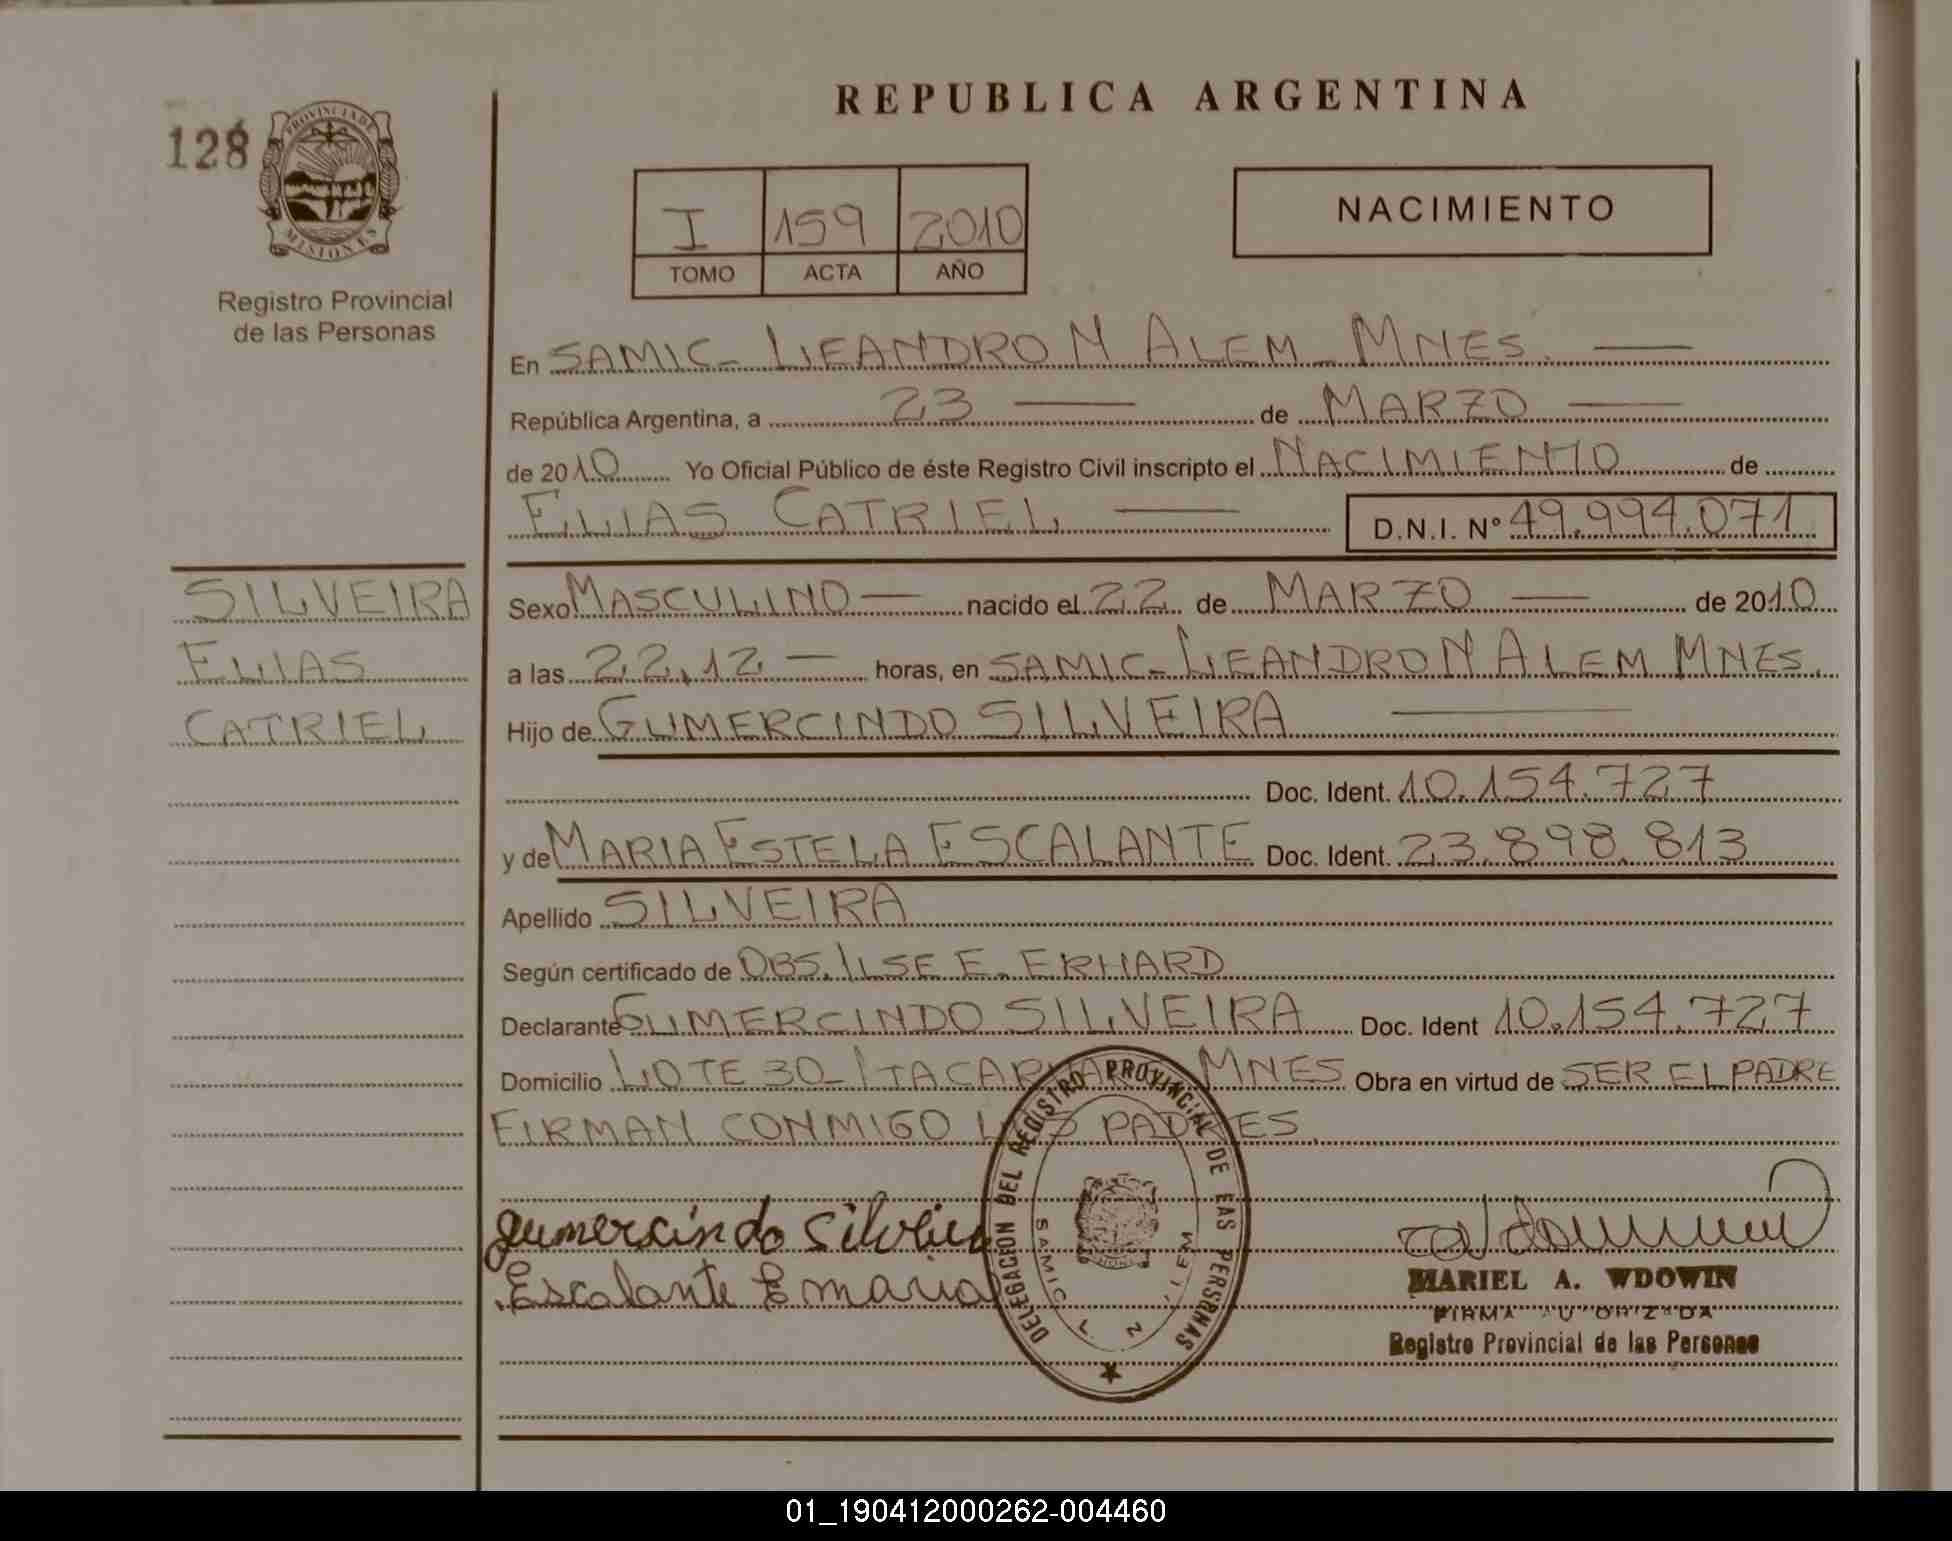 REPUBLICA ARGENTINA
128
PROVINCIA DE
MISIONES
Registro Provincial
de las Personas
I 159 2010
TOMO ACTA AÑO
NACIMIENTO
En SAMIC- LEANDRO N ALEM- MNES.
República Argentina, a 23 de MARZO
de 2010 Yo Oficial Público de éste Registro Civil inscripto el NACIMIENTO de
ELIAS CATRIEL D.N.I. Nº 49.994.071
SILVEIRA
ELIAS
CATRIEL
Sexo MASCULINO nacido el 22 de MARZO de 2010
a las 22,12 horas, en SAMIC- LEANDRO N ALEM MNES.
Hijo de GUMERCINDO SILVEIRA
Doc. Ident. 10.154.727
y de MARIA ESTELA ESCALANTE Doc. Ident. 23.898.813
Apellido SILVEIRA
Según certificado de OBS. ILSE E. ERHARD
Declarante GUMERCINDO SILVEIRA Doc. Ident 10.154.727
Domicilio LOTE 30- MNES Obra en virtud de SER EL PADRE
FIRMAN CONMIGO LOS PADRES.
gumercindo Silveira
Escalante E maria
DELEGACION DEL REGISTRO PROVINCIAL DE LAS PERSONAS
SAMIC L. N.
MARIEL A. WDOWIN
FIRMA AUTORIZADA
Registro Provincial de las Personas
01_190412000262-004460